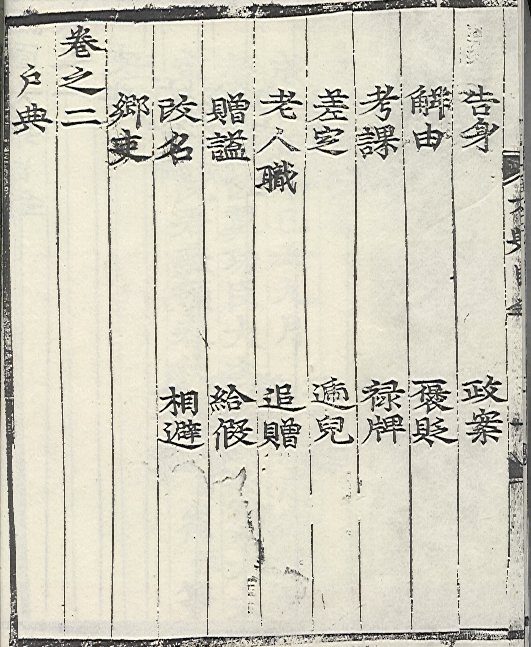 告身 政案
解由 褒貶
考課 禄牌
差定 遞兒
老人職 追贈
贈謚 給假
改名 相避
鄉吏
卷之二
戶典